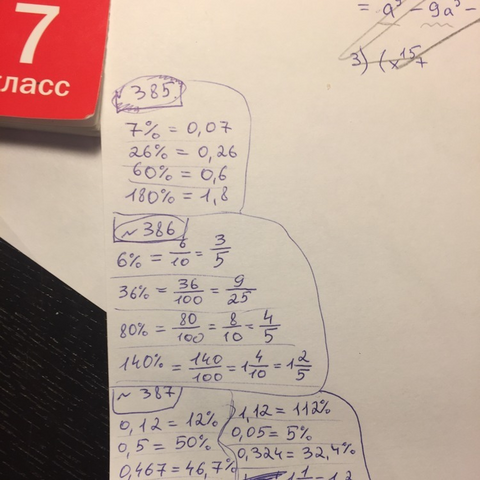 7
класс
= a³ - 9a³ -
3) (x
~ 385
7% = 0,07
26% = 0,26
60% = 0,6
180% = 1,8
~ 386
6% = 6/10 = 3/5
36% = 36/100 = 9/25
80% = 80/100 = 8/10 = 4/5
140% = 140/100 = 1 4/10 = 1 2/5
~ 387
0,12 = 12%
0,5 = 50%
0,467 = 46,7%
1,12 = 112%
0,05 = 5%
0,324 = 32,4%